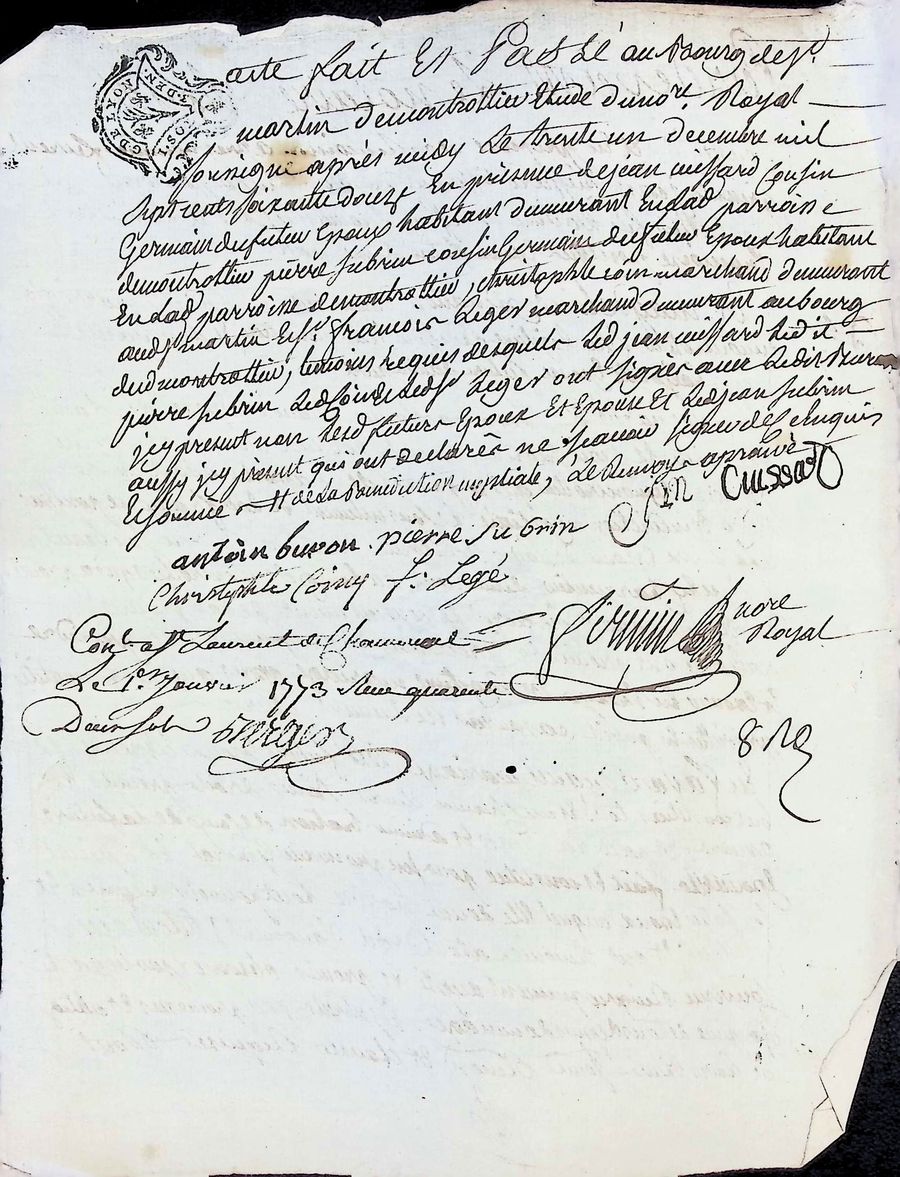 acte fait Et Passé au Bourg de St
martin de montrottier Etude du nore. Royal
soussigné apres midy Le trente un decembre mil
sept cents soixante douze En presence de jean cuissard Cousin
Germain du futeur Epoux habitant demeurant En lad parroisse
de montrottier pierre subrin cousin Germain du futeur Epoux habitant
En lad parroisse de montrottier, christophle coin marchand demeurant
aud st martin Et Sr. françois Leger marchand demeurant au bourg
dud montrottier, temoins requis desquels Led jean cuissard Led it
pierre subrin Led Leds Leger ont signés avec Ledit
jcy present non Lesd futurs Epoux Et Epouse Et Led jean subrin
aussy jcy present qui ont declarés ne sçavoir signer de ce enquis
Et somme # de La Benediction nuptiale, Le Renvoy aprouvé
cuissard
antoin buron . pierre subrin
Christophle Coing f. Legé
nore
Royal
Conlé a St Laurent de Chamousset
Le 1er Janvier 1773 Reçu quarente
Deux sols
G DE LYON